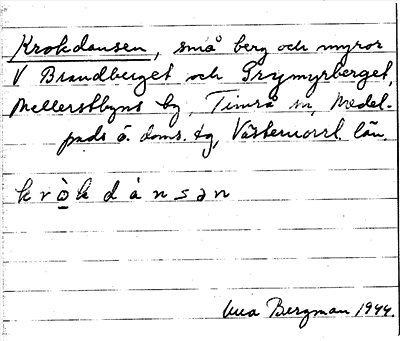 Krokdansen, små berg och myror
V Brandberget och Grymyrberget,
Mellerstbyns by, Timrå sn, Medel-
pads ö. doms. tg, Västernorrl. län.
k r ò̲ k d à n s ə n
Bergman 1944.